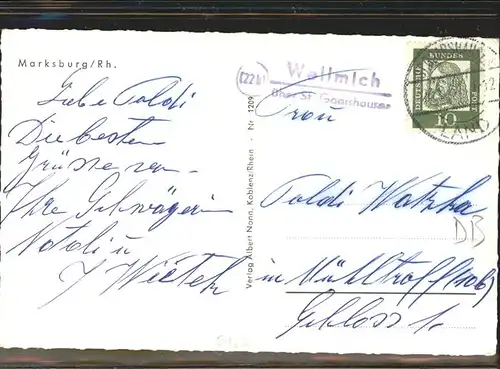 Marksburg/Rh.
(22b)
Wellmich
über St. Goarshausen
DEUTSCHE BUNDESPOST
10
LAND
Liebe Poldi
Die besten
Grüsse von
Ihre Schwägerin
Natali u
Frau
Poldi Watzka
in Mühltroff (10b)
Schloss 1.
DB
Verlag Albert Nonn, Koblenz/Rhein - Nr. 1209